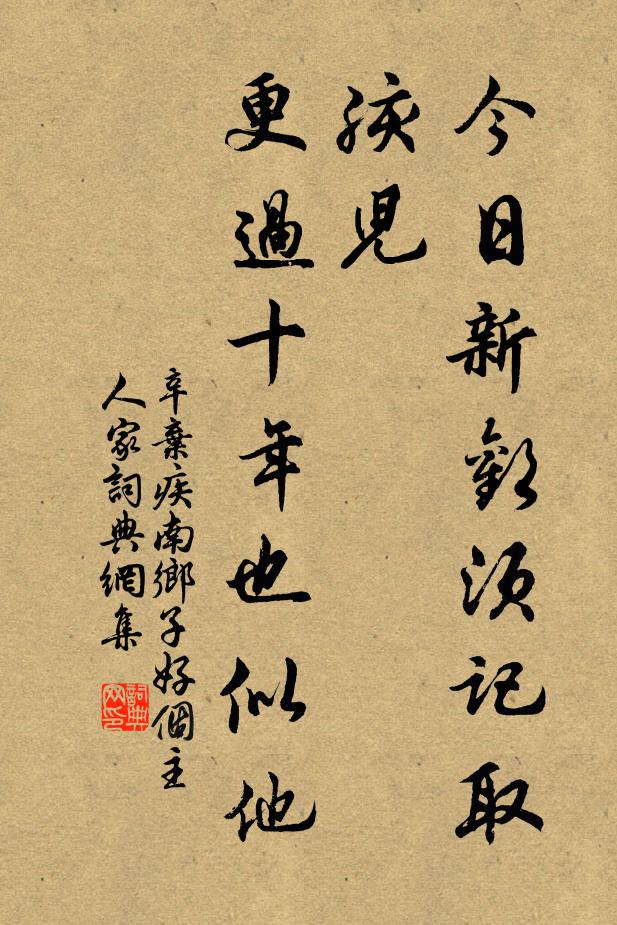 今日新歡須記取
孩兒
更過十年也似他
辛棄疾南鄉子好個主
人家詞典網集
詞典
网印